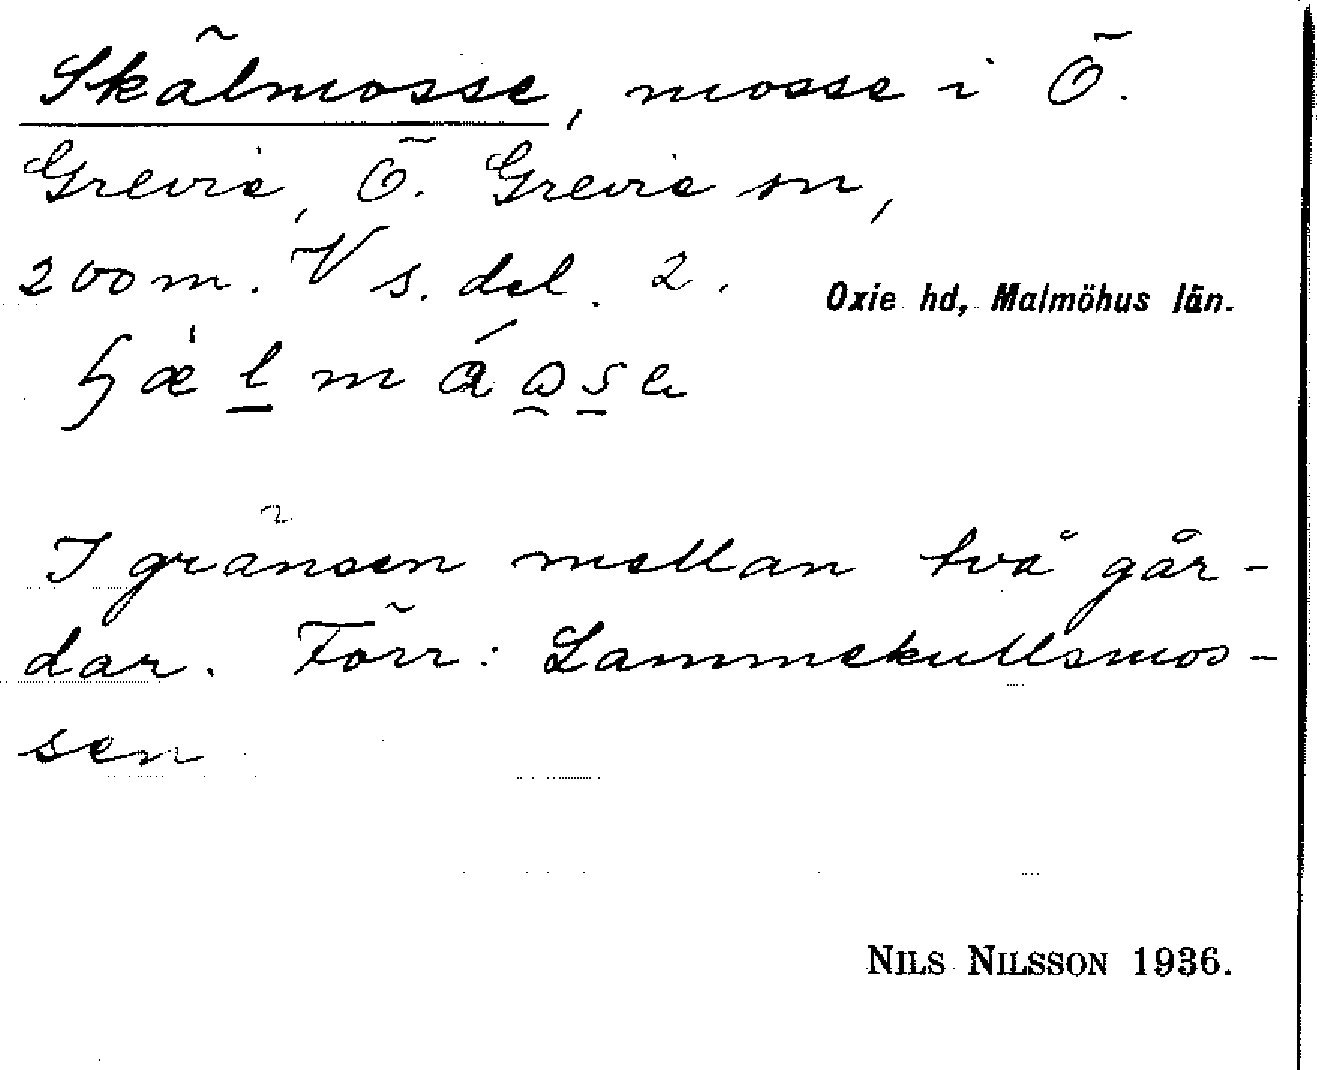 Skälmosse, mosse i Ö.
Grevie, Ö. Grevie sn,
200 m. V s. del. 2.
Oxie hd, Malmöhus län.
I gränsen mellan två går-
dar. Förr: Lammekullsmos-
sen
NILS NILSSON 1936.